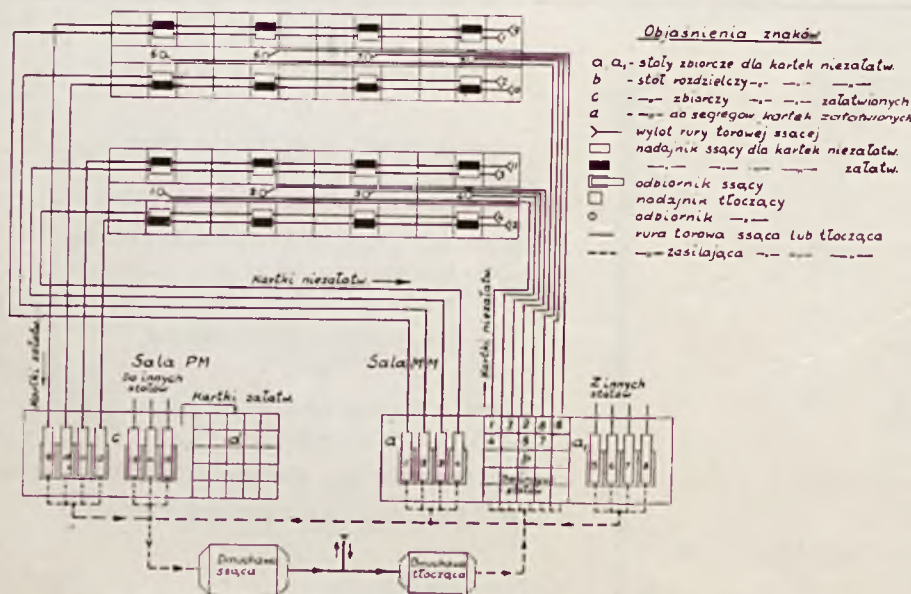 Objaśnienia znaków
a, a₁ - stoły zbiorcze dla kartek niezałatw.
b - stoł rozdzielczy -„- -„- -„-
c - -„- zbiorczy -„- -„- załatwionych
d - -„- do segregow. kartek załatwionych
wylot rury torowej ssącej
nadajnik ssący dla kartek niezałatw.
-„- -„- -„- -„- załatw.
odbiornik ssący
nadajnik tłoczący
odbiornik -„-
rura torowa ssąca lub tłocząca
-„- zasilająca -„- -„- -„-
Kartki niezałatw.
Kartki załatw.
Kartki niezałatw.
Sala PM
Do innych
stołów
Kartki załatw.
Sala MM
Z innych
stołów
c
d
a
1 3 2 8 6
4 5 7
b
Do innych
stołów
a₁
5 6 7 8
Dmuchawa
ssąca
Dmuchawa
tłocząca